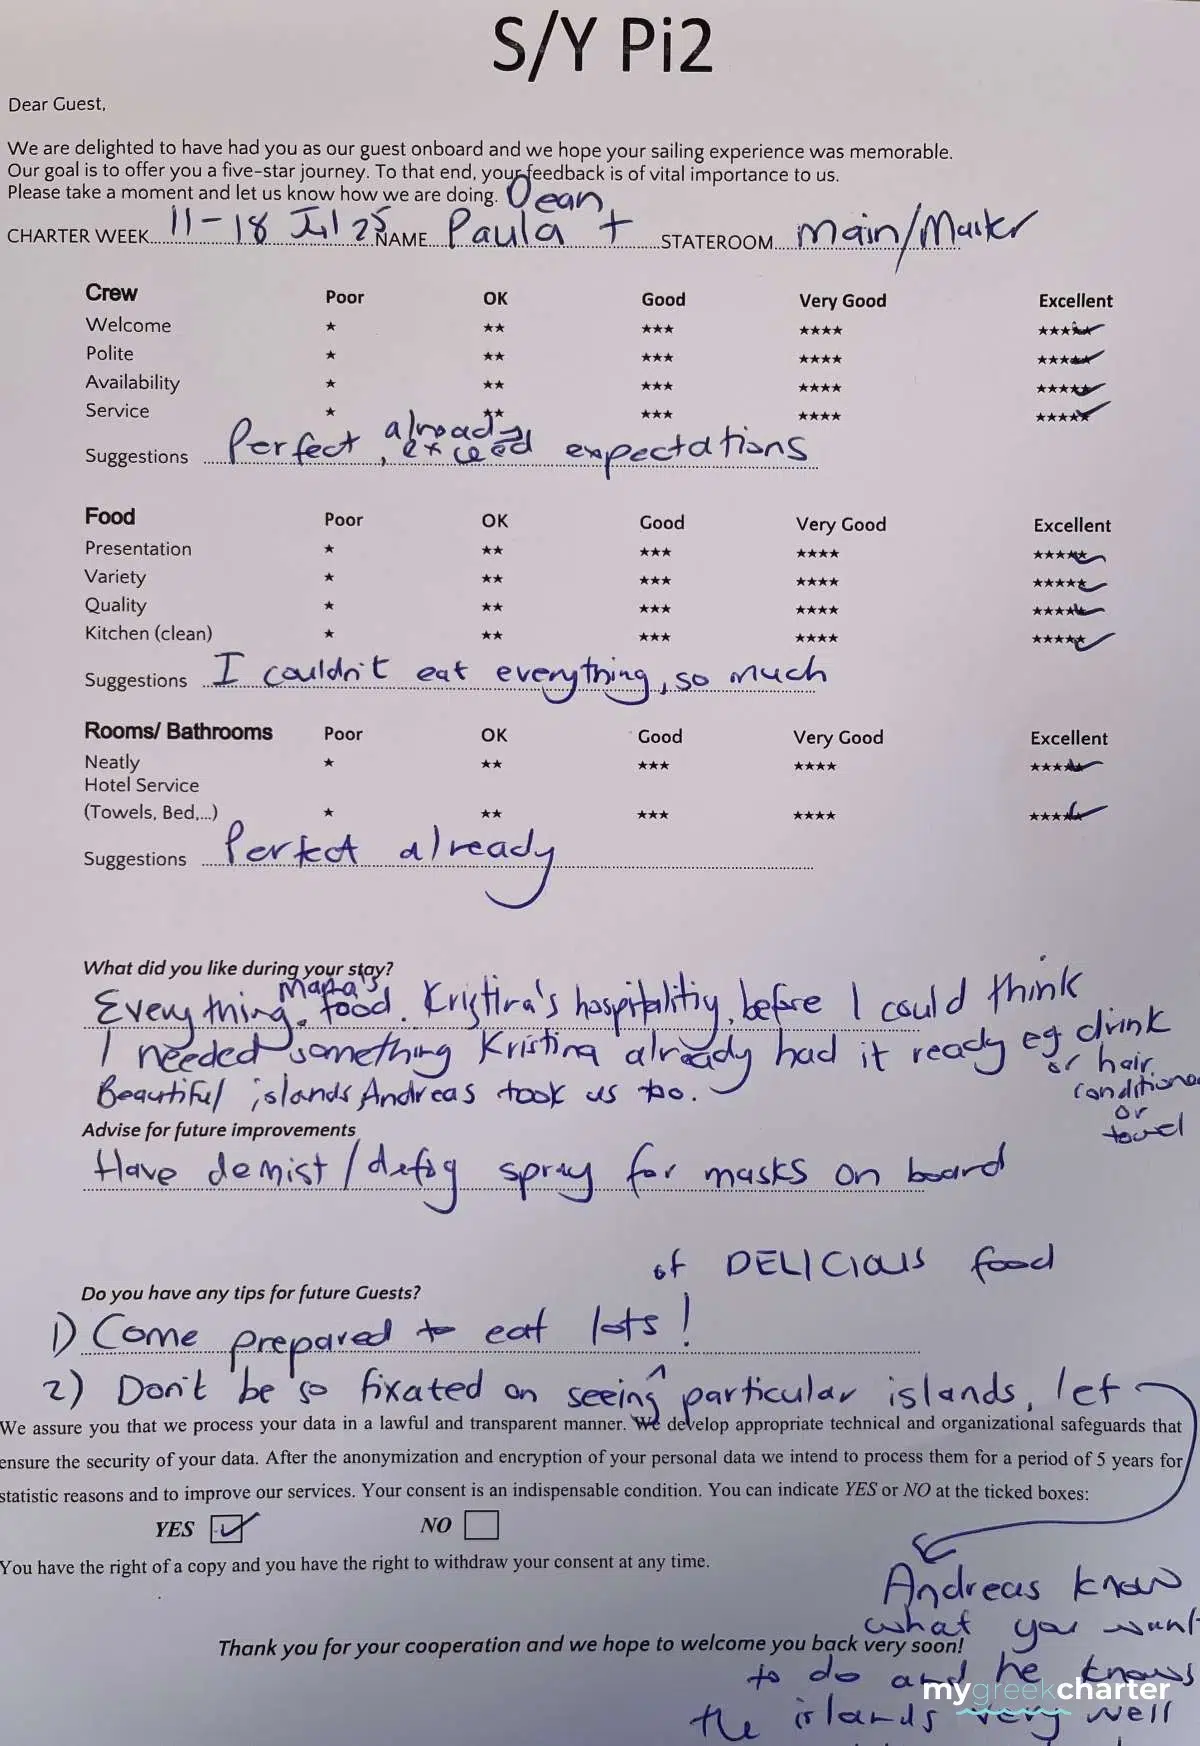 S/Y Pi2
Dear Guest,
We are delighted to have had you as our guest onboard and we hope your sailing experience was memorable.
Our goal is to offer you a five-star journey. To that end, your feedback is of vital importance to us.
Please take a moment and let us know how we are doing.
CHARTER WEEK 11-18 Jul 25 NAME Paula + Dean STATEROOM Main/Master
Crew Poor OK Good Very Good Excellent
Welcome ★ ★★ ★★★ ★★★★ ★★★★★
Polite ★ ★★ ★★★ ★★★★ ★★★★★
Availability ★ ★★ ★★★ ★★★★ ★★★★★
Service ★ ★★ ★★★ ★★★★ ★★★★★
Suggestions Perfect, already exceed expectations
Food Poor OK Good Very Good Excellent
Presentation ★ ★★ ★★★ ★★★★ ★★★★★
Variety ★ ★★ ★★★ ★★★★ ★★★★★
Quality ★ ★★ ★★★ ★★★★ ★★★★★
Kitchen (clean) ★ ★★ ★★★ ★★★★ ★★★★★
Suggestions I couldn't eat everything, so much
Rooms/ Bathrooms Poor OK Good Very Good Excellent
Neatly ★ ★★ ★★★ ★★★★ ★★★★★
Hotel Service
(Towels, Bed,...) ★ ★★ ★★★ ★★★★ ★★★★★
Suggestions Perfect already
What did you like during your stay?
Everything. food. Kristina's hospitalitiy, before I could think
I needed something Kristina already had it ready eg drink
or hair
conditioner
or
towel
Beautiful islands Andreas took us to.
Advise for future improvements
Have demist/defog spray for masks on board
Do you have any tips for future Guests?
1) Come prepared to eat lots!
of DELICIOUS food
2) Don't be so fixated on seeing particular islands, let
We assure you that we process your data in a lawful and transparent manner. We develop appropriate technical and organizational safeguards that
ensure the security of your data. After the anonymization and encryption of your personal data we intend to process them for a period of 5 years for
statistic reasons and to improve our services. Your consent is an indispensable condition. You can indicate YES or NO at the ticked boxes:
YES NO
You have the right of a copy and you have the right to withdraw your consent at any time.
Andreas know
what you want
Thank you for your cooperation and we hope to welcome you back very soon!
to do and he knows
the islands very well
mygreekcharter